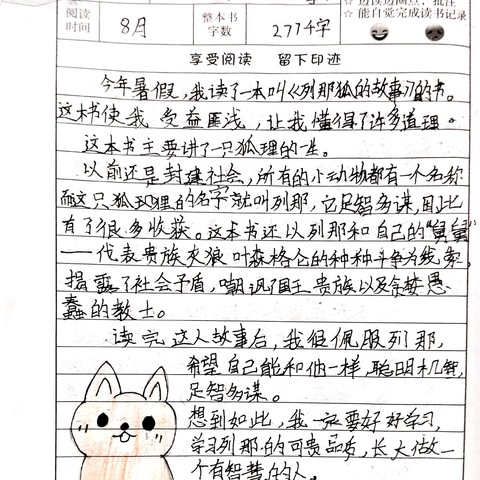 阅读时间 8月 整本书字数 2774字
☆ 能自觉完成读书记录
享受阅读 留下印迹
今年暑假,我读了一本叫《列那狐的故事》的书。
这本书使我受益匪浅,让我懂得了许多道理。
这本书主要讲了一只狐理的一生。
以前还是封建社会,所有的小动物都有一个名称
而这只狐狸的名字就叫列那,它足智多谋,因此
有了很多收获。这本书还以列那和自己的“舅舅”
——代表贵族灰狼叶森格仑的种种斗争为线索。
揭露了社会矛盾,嘲讽国王贵族以及贪婪愚
蠢的教士。
读完这人故事后,我很佩服列那,
希望自己能和他一样,聪明机智,
足智多谋。
想到如此,我一定要好好学习,
学习列那的可贵品质,长大做一
个有智慧的人。